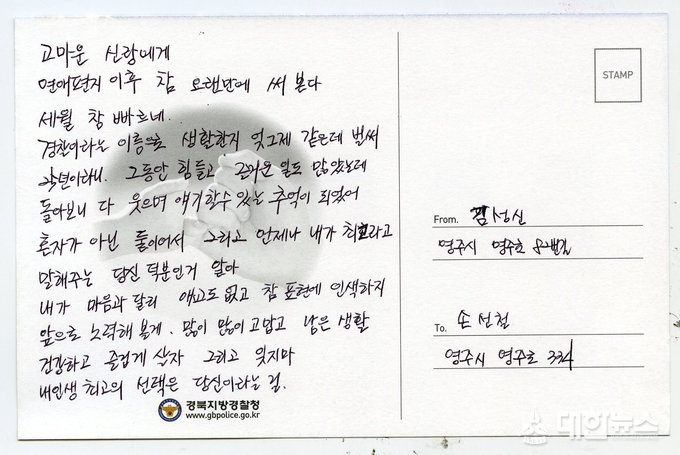 고마운 신랑에게
연애편지 이후 참 오랜만에 써 본다
세월 참 빠르네.
경찰이라는 이름으로 생활한지 엊그제 같은데 벌써
년이라니. 그동안 힘들고 즐거운 일도 많았는데
돌아보니 다 웃으며 얘기할수 있는 추억이 되었어
혼자가 아닌 둘이어서 그리고 언제나 내가 최고라고
말해주는 당신 덕분인거 알아
내가 마음과 달리 애교도 없고 참 표현에 인색하지
앞으로 노력해 볼게. 많이 많이 고맙고 남은 생활
건강하고 즐겁게 살자 그리고 잊지마
내인생 최고의 선택은 당신이라는 걸.
경북지방경찰청
www.gbpolice.go.kr
STAMP
From. 김성신
영주시 영주호
To. 손선철
영주시 영주호 334
대한뉴스